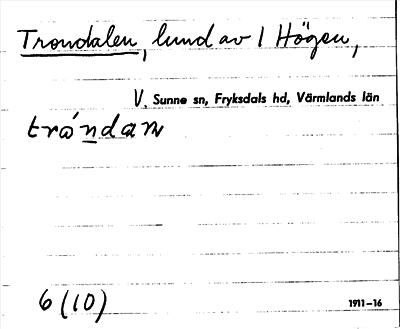 Trondalen, lund av 1 Högen,
V. Sunne sn, Fryksdals hd, Värmlands län
tråndaɴ
6 (10)
1911–16